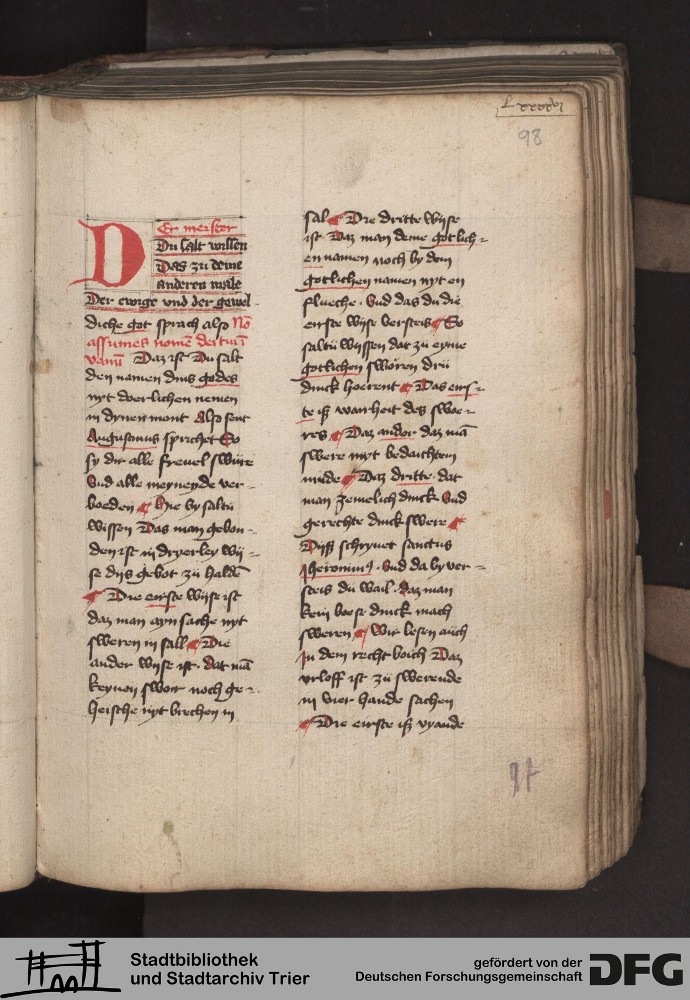 Lxxxxvi
98
DEr meister
Du salt wissen
Das zu deme
anderen male
Der ewige vnd der gewel-
diche got sprach also No
assumes nomē dei tui ī
vanū Daz ist Du salt
den namen dins godes
nyt doerlichen nemen
in dynen mont Also sent
Augustinus sprichet So
sy dir alle frevel swüre
Vnd alle meyneyde ver-
boeden Hie by saltu
wissen Das man gebon-
den ist in dryerley wij-
se dijs gebot zü haldē
Die eirste wijse ist
daz man ayn sache nyt
sweren in sall Die
ander wijse ist. dat mā
keynen swoir noch ge-
heische nyt brechen in
sal Die dritte wijse
ist. Daz man deme gotlich-
en namen noch by dem
gotlichen namen nyt en
flueche. Vnd das du die
eirste wijse versteis So
saltü wijssen dat zü eyme
gotlichen sworen drü
dinck hoerent Das eirs-
te iß wairheit des swoe-
res Daz ander daz mā
swere myt bedaichtem
müde Daz dritte. dat
man zemelich dinck Vnd
gerechte dinck swere
Dijß schryuet sanctus
Jheronimus. Vnd da by ver-
steis dü wail. daz man
kein boese dinck mach
sweren Wir lesen aüch
In dem recht boich Daz
vrloff ist zü swerende
in vier hande sachen
Die eirste iß vyande
97
Stadtbibliothek
und Stadtarchiv Trier
gefördert von der
Deutschen Forschungsgemeinschaft
DFG